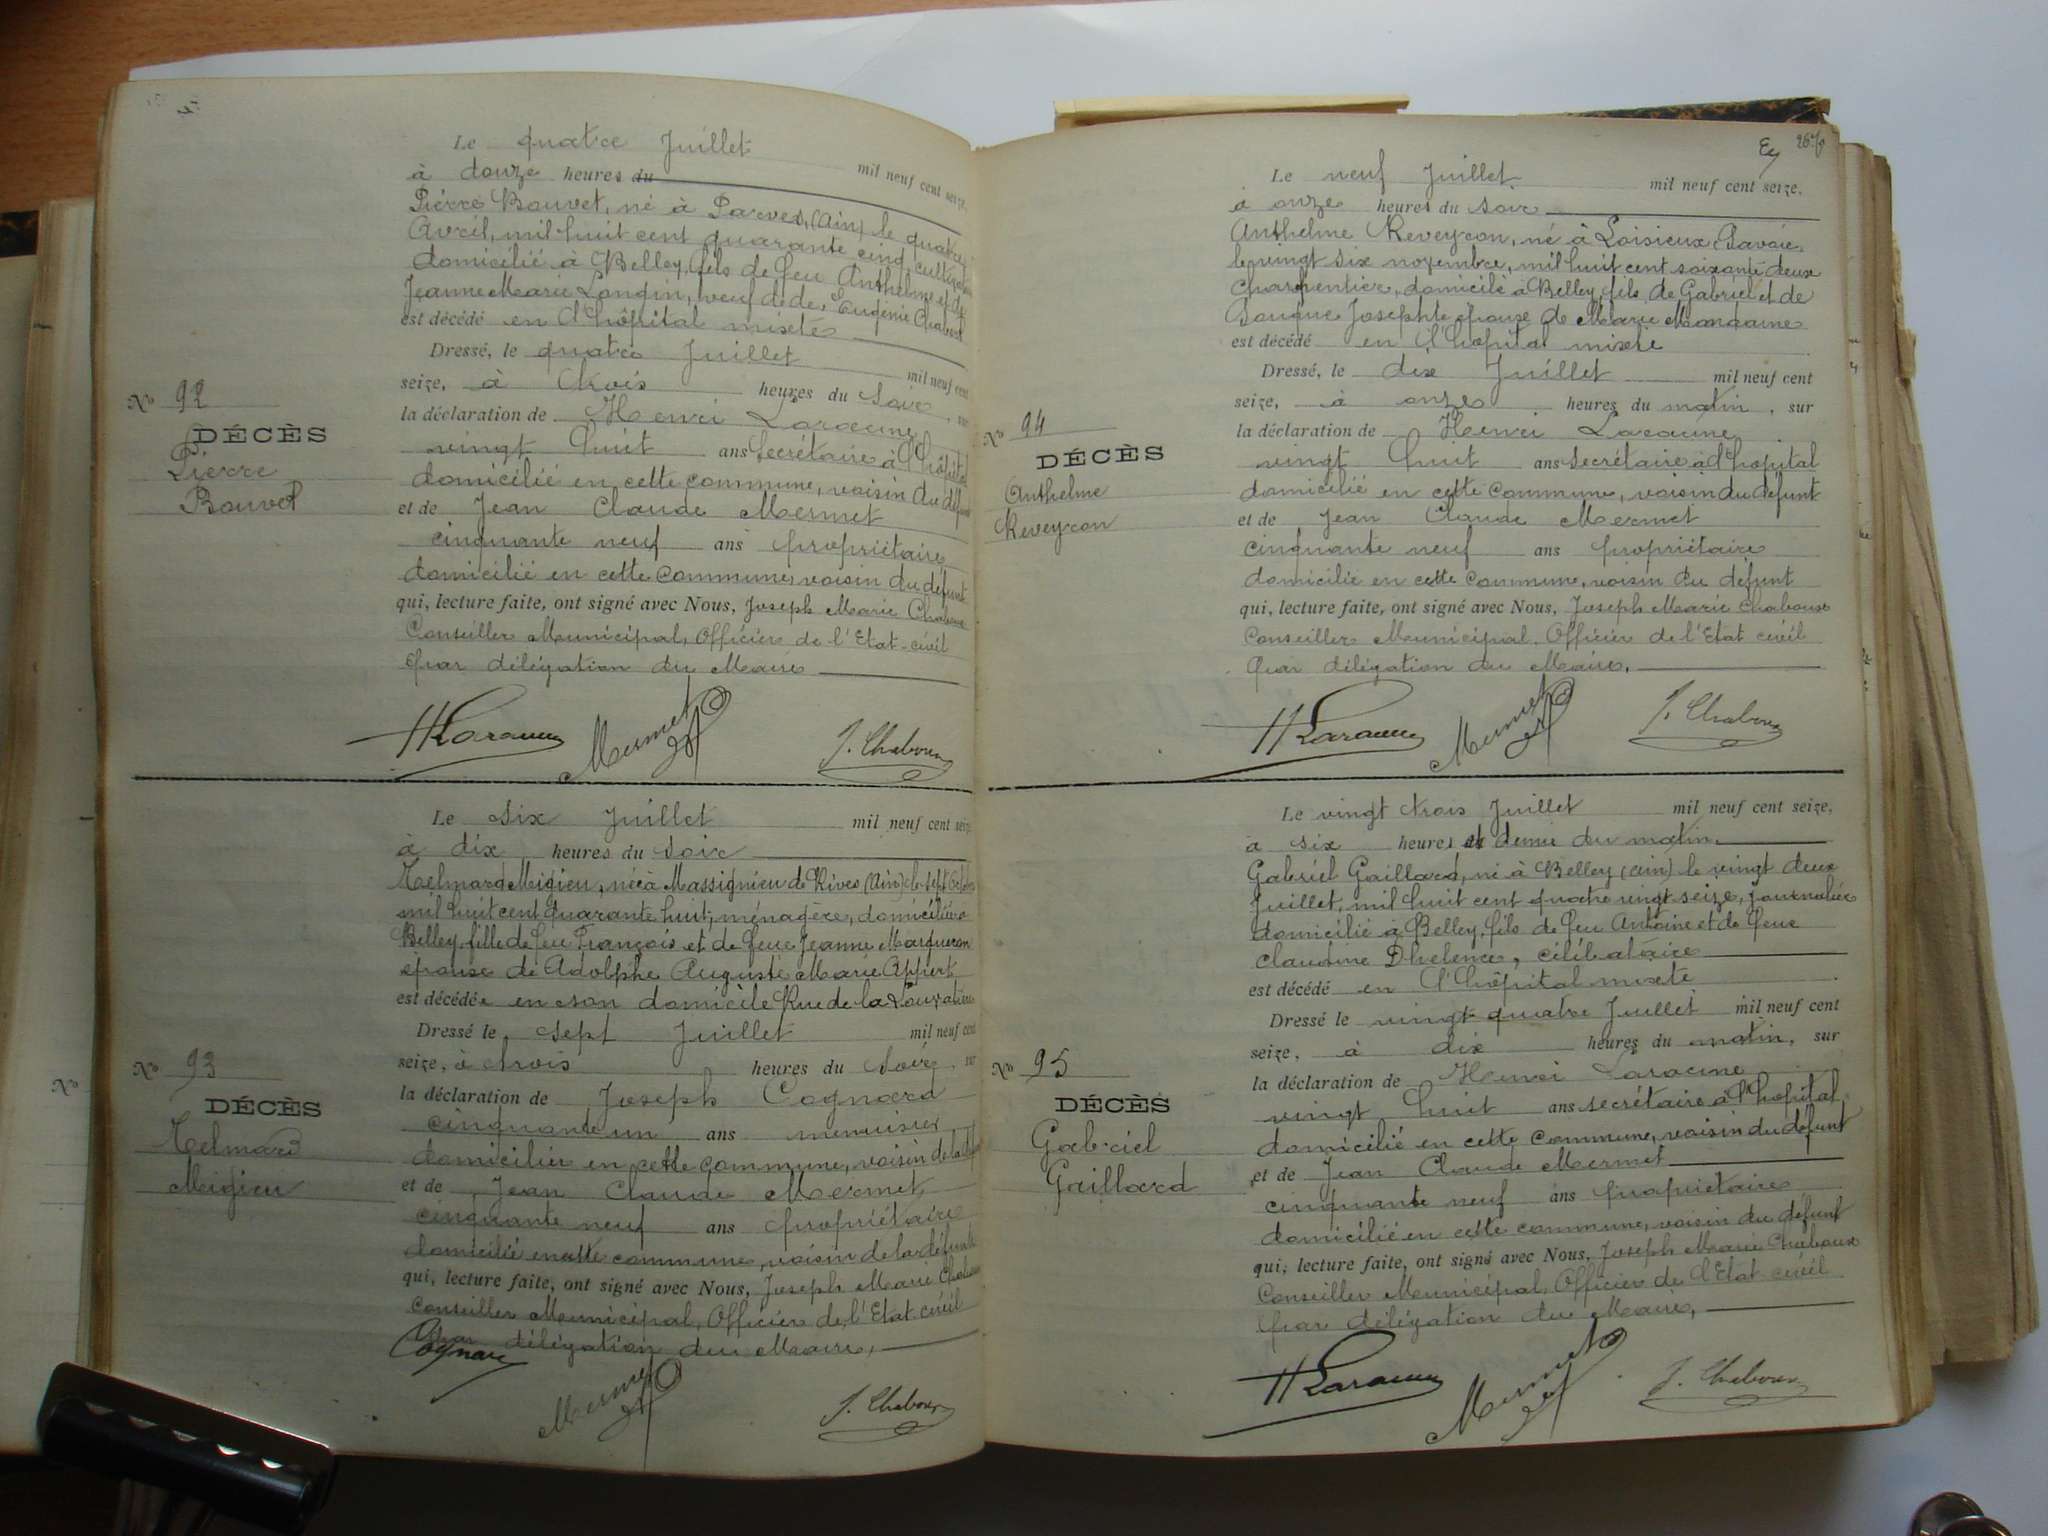 Le quatre Juillet mil neuf cent seize,
à douze heures du
Pierre Bouvet, né à Parves, (Ain) le quatre
Avril, mil huit cent quarante cinq, cultivateur
domicilié à Belley, fils de feu Anthelme et de
Jeanne Marie Longin, veuf de Eugénie Chabert
est décédé en l'hôpital mixte
Dressé, le quatre Juillet mil neuf cent
seize, à trois heures du soir, sur
la déclaration de Henri Laracine
vingt huit ans secrétaire à l'hôpital
domicilié en cette commune, voisin du défunt
et de Jean Claude Mermet
cinquante neuf ans propriétaire
domicilié en cette commune, voisin du défunt
qui, lecture faite, ont signé avec Nous, Joseph Marie Chaboux
Conseiller Municipal, Officier de l'Etat-civil
par délégation du Maire
HLaracine Mermet J. Chaboux
No 92
DÉCÈS
Pierre
Bouvet
Le six Juillet mil neuf cent seize
à dix heures du soir
Migieu, née à Massignieu de Rives (Ain) le sept
mil huit cent quarante huit, ménagère, domiciliée à
Belley, fille de feu François et de feue Jeanne Marqueron
épouse de Adolphe Auguste Marie Appert
est décédée en son domicile Rue de la
Dressé le sept Juillet mil neuf cent
seize, à trois heures du soir, sur
la déclaration de Joseph Cognard
cinquante un ans menuisier
domicilier en cette commune, voisin de la
et de Jean Claude Mermet,
cinquante neuf ans propriétaire
domicilié en cette commune, voisin de la défunte
qui, lecture faite, ont signé avec Nous, Joseph Marie Chaboux
Conseiller Municipal, Officier de l'Etat-civil
par délégation du Maire,
Cognard Mermet J. Chaboux
No 93
DÉCÈS
Migieu
267
Le neuf Juillet mil neuf cent seize.
à onze heures du soir
Anthelme Reveyron, né à Loisieux, Savoie,
le vingt six novembre, mil huit cent soixante deux
charpentier, domicilié à Belley, fils de Gabriel et de
Josephte, époux de Marie
est décédé en l'hôpital mixte
Dressé, le dix Juillet mil neuf cent
seize, à onze heures du matin, sur
la déclaration de Henri Laracine
vingt huit ans secrétaire à l'hôpital
domicilié en cette commune, voisin du défunt
et de Jean Claude Mermet
cinquante neuf ans propriétaire
domicilié en cette commune, voisin du défunt
qui, lecture faite, ont signé avec Nous, Joseph Marie Chaboux
Conseiller Municipal. Officier de l'Etat civil
par délégation du Maire.
HLaracine Mermet J. Chaboux
No 94
DÉCÈS
Anthelme
Reveyron
Le vingt trois Juillet mil neuf cent seize,
à six heures et demie du matin.
Gabriel Gaillard, né à Belley (Ain) le vingt deux
Juillet, mil huit cent quatre vingt seize, journalier
domicilié à Belley, fils de feu Antoine et de feue
Claudine Dhelence, célibataire
est décédé en l'hôpital mixte
Dressé le vingt quatre Juillet mil neuf cent
seize, à dix heures du matin, sur
la déclaration de Henri Laracine
vingt huit ans secrétaire à l'hôpital
domicilié en cette commune, voisin du défunt
et de Jean Claude Mermet
cinquante neuf ans propriétaire
domicilié en cette commune, voisin du défunt
qui, lecture faite, ont signé avec Nous, Joseph Marie Chaboux
Conseiller Municipal, Officier de l'Etat civil
par délégation du Maire,
HLaracine Mermet J. Chaboux
No 95
DÉCÈS
Gabriel
Gaillard
No